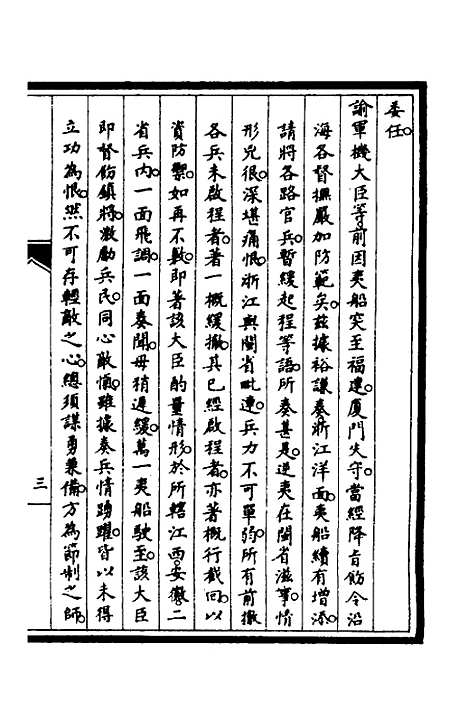 委任。
諭軍機大臣等。前因夷船突至福建。厦門失守。當經降旨飭令沿
海各督撫嚴加防範矣。茲據裕謙奏浙江洋面。夷船續有增添。
請將各路官兵。暫緩起程等語。所奏甚是。逆夷在閩省滋事。情
形兇狠。深堪痛恨。浙江與閩省毗連。兵力不可單弱。所有前撤
各兵未啟程者。著一概緩撤。其已經啟程者。亦著概行截回。以
資防禦。如再不敷。即著該大臣酌量情形。於所轄江西。安徽。二
省兵內。一面飛調。一面奏聞。毋稍遲緩。萬一夷船駛至。該大臣
即督飭鎮將。激勵兵民。同心敵愾。雖據奏兵情踴躍。皆以未得
立功為恨。然不可存輕敵之心。總須謀勇兼備。方為節制之師。
三